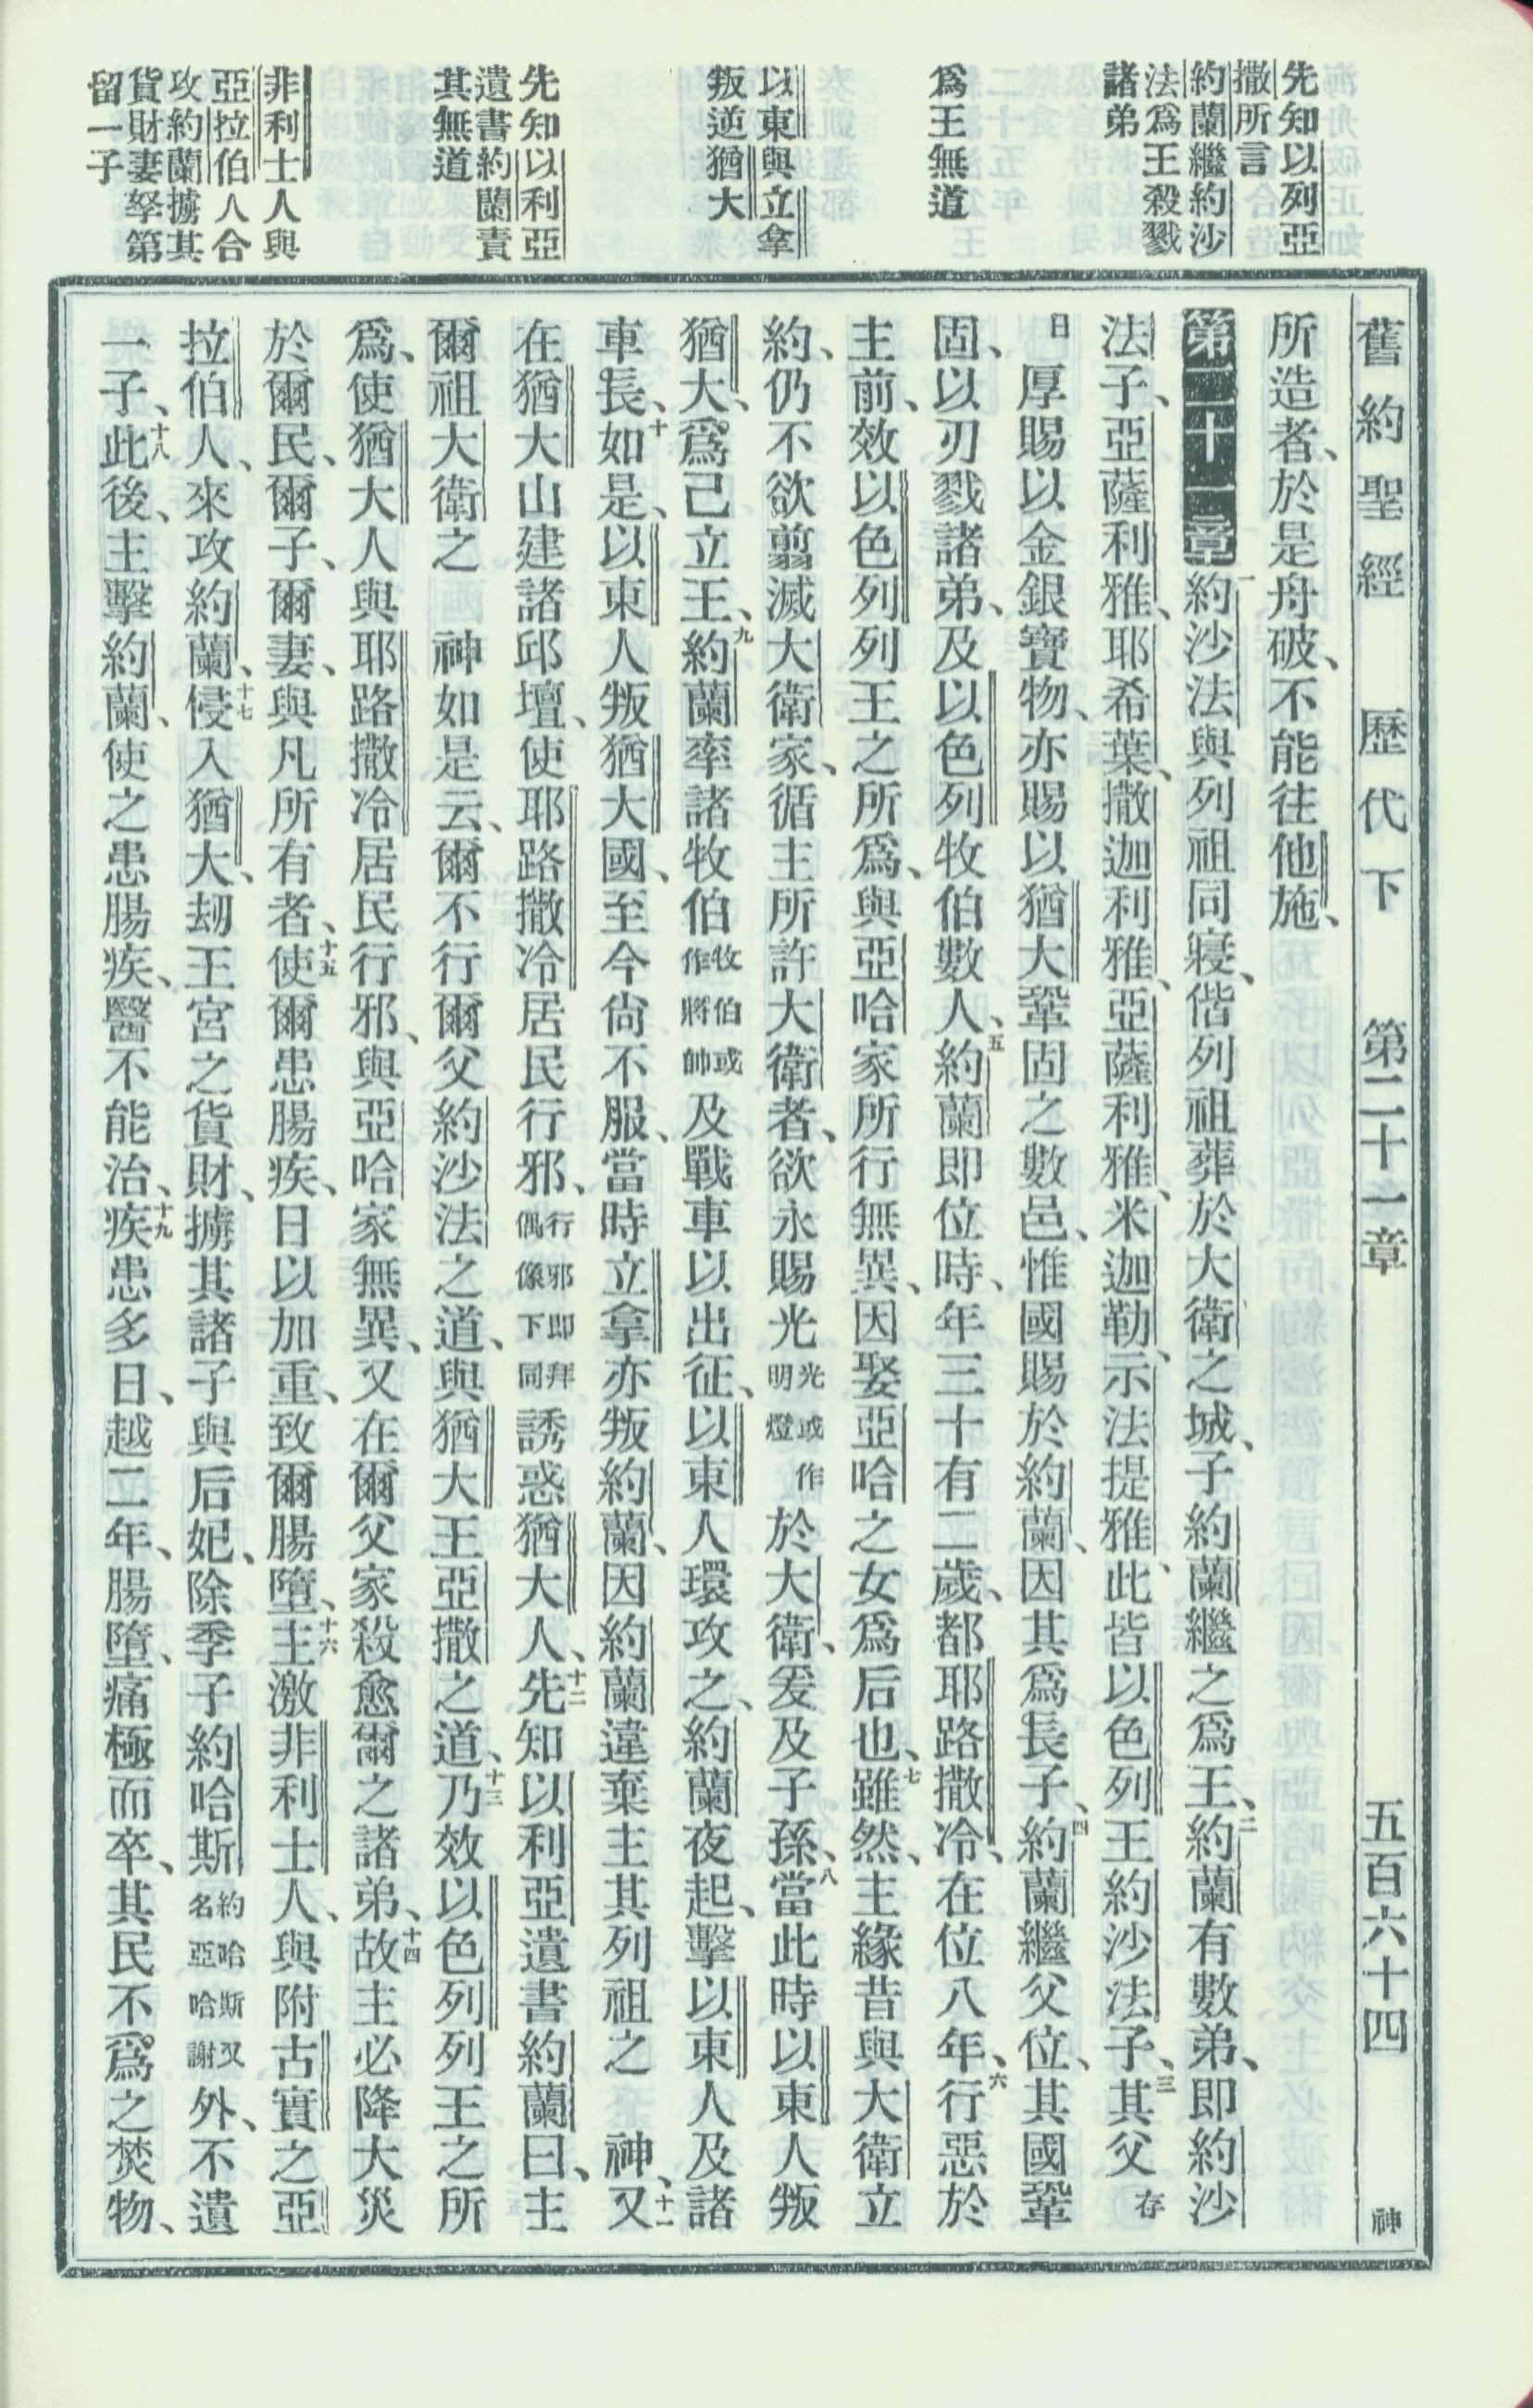 舊約聖經 歷代下 第二十一章 五百六十四 神
先知以列亞
撒所言
約蘭繼約沙
法爲王殺戮
諸弟
爲王無道
以東與立拿
叛逆猶大
先知以利亞
遺書約蘭責
其無道
非利士人與
亞拉伯人合
攻約蘭擄其
貨財妻孥第
留一子
所造者、於是舟破、不能往他施、
第二十一章 一約沙法與列祖同寢、偕列祖葬於大衛之城、子約蘭繼之爲王、二約蘭有數弟、即約沙
法子、亞薩利雅、耶希葉、撒迦利雅、亞薩利雅、米迦勒、示法提雅、此皆以色列王約沙法子、三其父存
日厚賜以金銀寶物、亦賜以猶大鞏固之數邑、惟國賜於約蘭、因其爲長子、四約蘭繼父位、其國鞏
固、以刃戮諸弟、及以色列牧伯數人、五約蘭即位時、年三十有二歲、都耶路撒冷、在位八年、六行惡於
主前、效以色列列王之所爲、與亞哈家所行無異、因娶亞哈之女爲后也、七雖然、主緣昔與大衛立
約、仍不欲翦滅大衛家、循主所許大衛者、欲永賜光光或作明燈於大衛、爰及子孫、八當此時以東人叛
猶大、爲己立王、九約蘭率諸牧伯牧伯或作將帥及戰車以出征、以東人環攻之、約蘭夜起、擊以東人及諸
車長、十如是、以東人叛猶大國、至今尙不服、當時立拿亦叛約蘭、因約蘭違棄主其列祖之 神、十一又
在猶大山建諸邱壇、使耶路撒冷居民行邪、行邪即拜偶像下同誘惑猶大人、十二先知以利亞遺書約蘭曰、主
爾祖大衛之 神如是云、爾不行爾父約沙法之道、與猶大王亞撒之道、十三乃效以色列列王之所
爲、使猶大人與耶路撒冷居民行邪、與亞哈家無異、又在爾父家殺愈爾之諸弟、十四故主必降大災
於爾民、爾子、爾妻、與凡所有者、十五使爾患腸疾、日以加重、致爾腸墮、十六主激非利士人、與附古實之亞
拉伯人、來攻約蘭、十七侵入猶大、刼王宮之貨財、擄其諸子與后妃、除季子約哈斯約哈斯又名亞哈謝外、不遺
一子、十八此後、主擊約蘭、使之患腸疾、醫不能治、十九疾患多日、越二年、腸墮、痛極而卒、其民不爲之焚物、